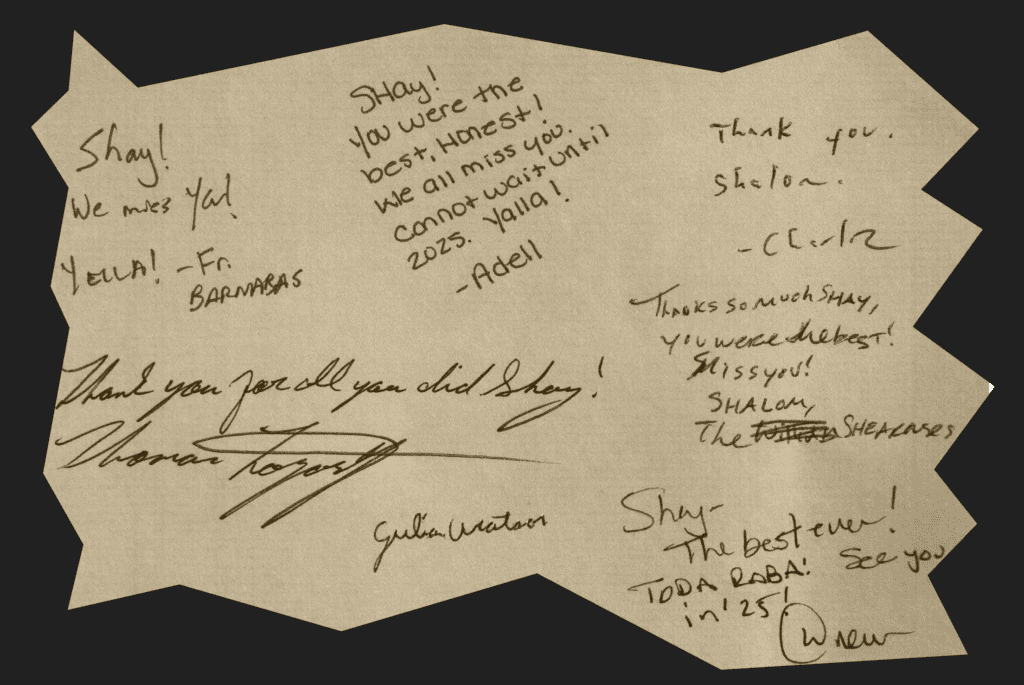 Shay!
We miss Ya!
YELLA! -Fr.
BARNABAS
SHay!
You were the
best, Honest!
We all miss you.
cannot wait until
2025. Yalla!
-Adell
Thank you.
Shalom.
Thanks so much SHAY,
you were the best!
Miss you!
SHALOM,
The SHEARUSES
Thank you for all you did Shay!
Thomas
Shay-
The best ever!
TODA RABA! See you
in '25!